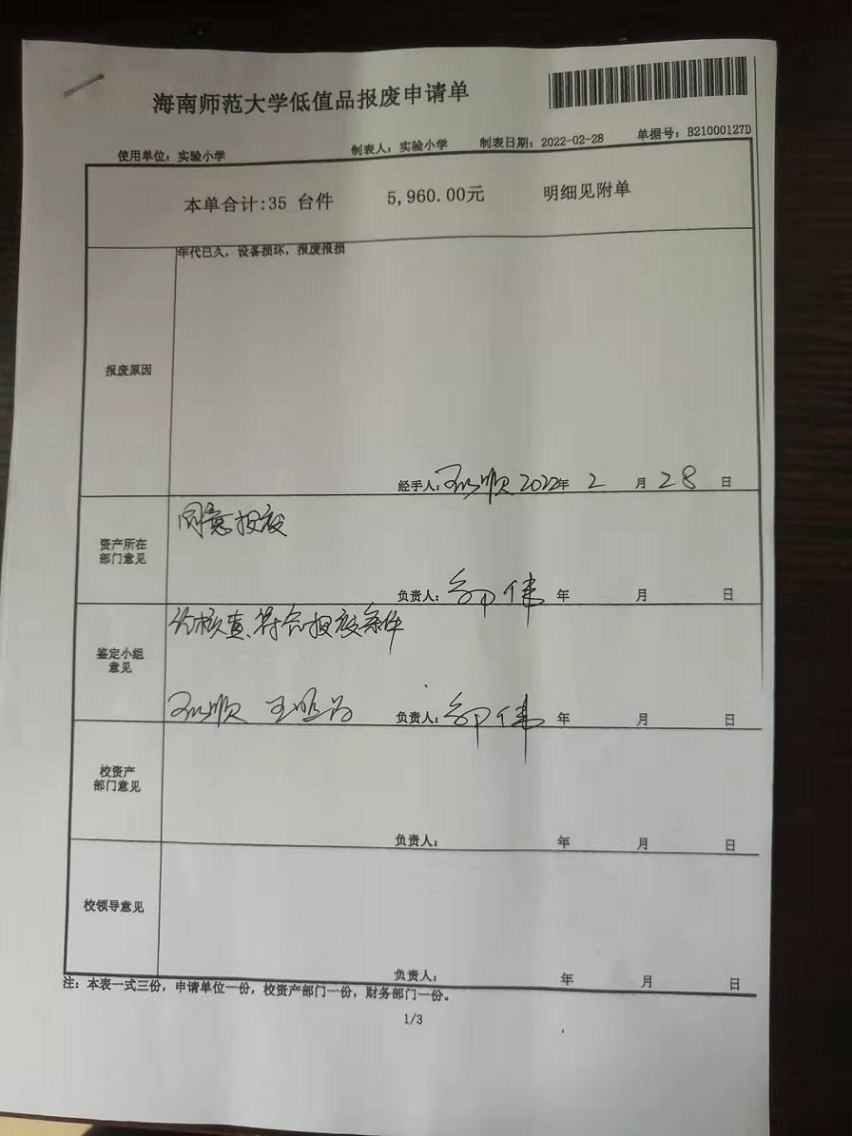 海南师范大学低值品报废申请单
使用单位：实验小学 制表人：实验小学 制表日期：2022-02-28 单据号：B21000127D
本单合计:35 台件 5,960.00元 明细见附单
年代已久，设备损坏，报废报损
报废原因
经手人： 2022年 2 月 28 日
同意报废
资产所在
部门意见
负责人： 年 月 日
经核查，符合报废条件
鉴定小组
意见
负责人： 年 月 日
校资产
部门意见
负责人： 年 月 日
校领导意见
负责人： 年 月 日
注：本表一式三份，申请单位一份，校资产部门一份，财务部门一份。
1/3